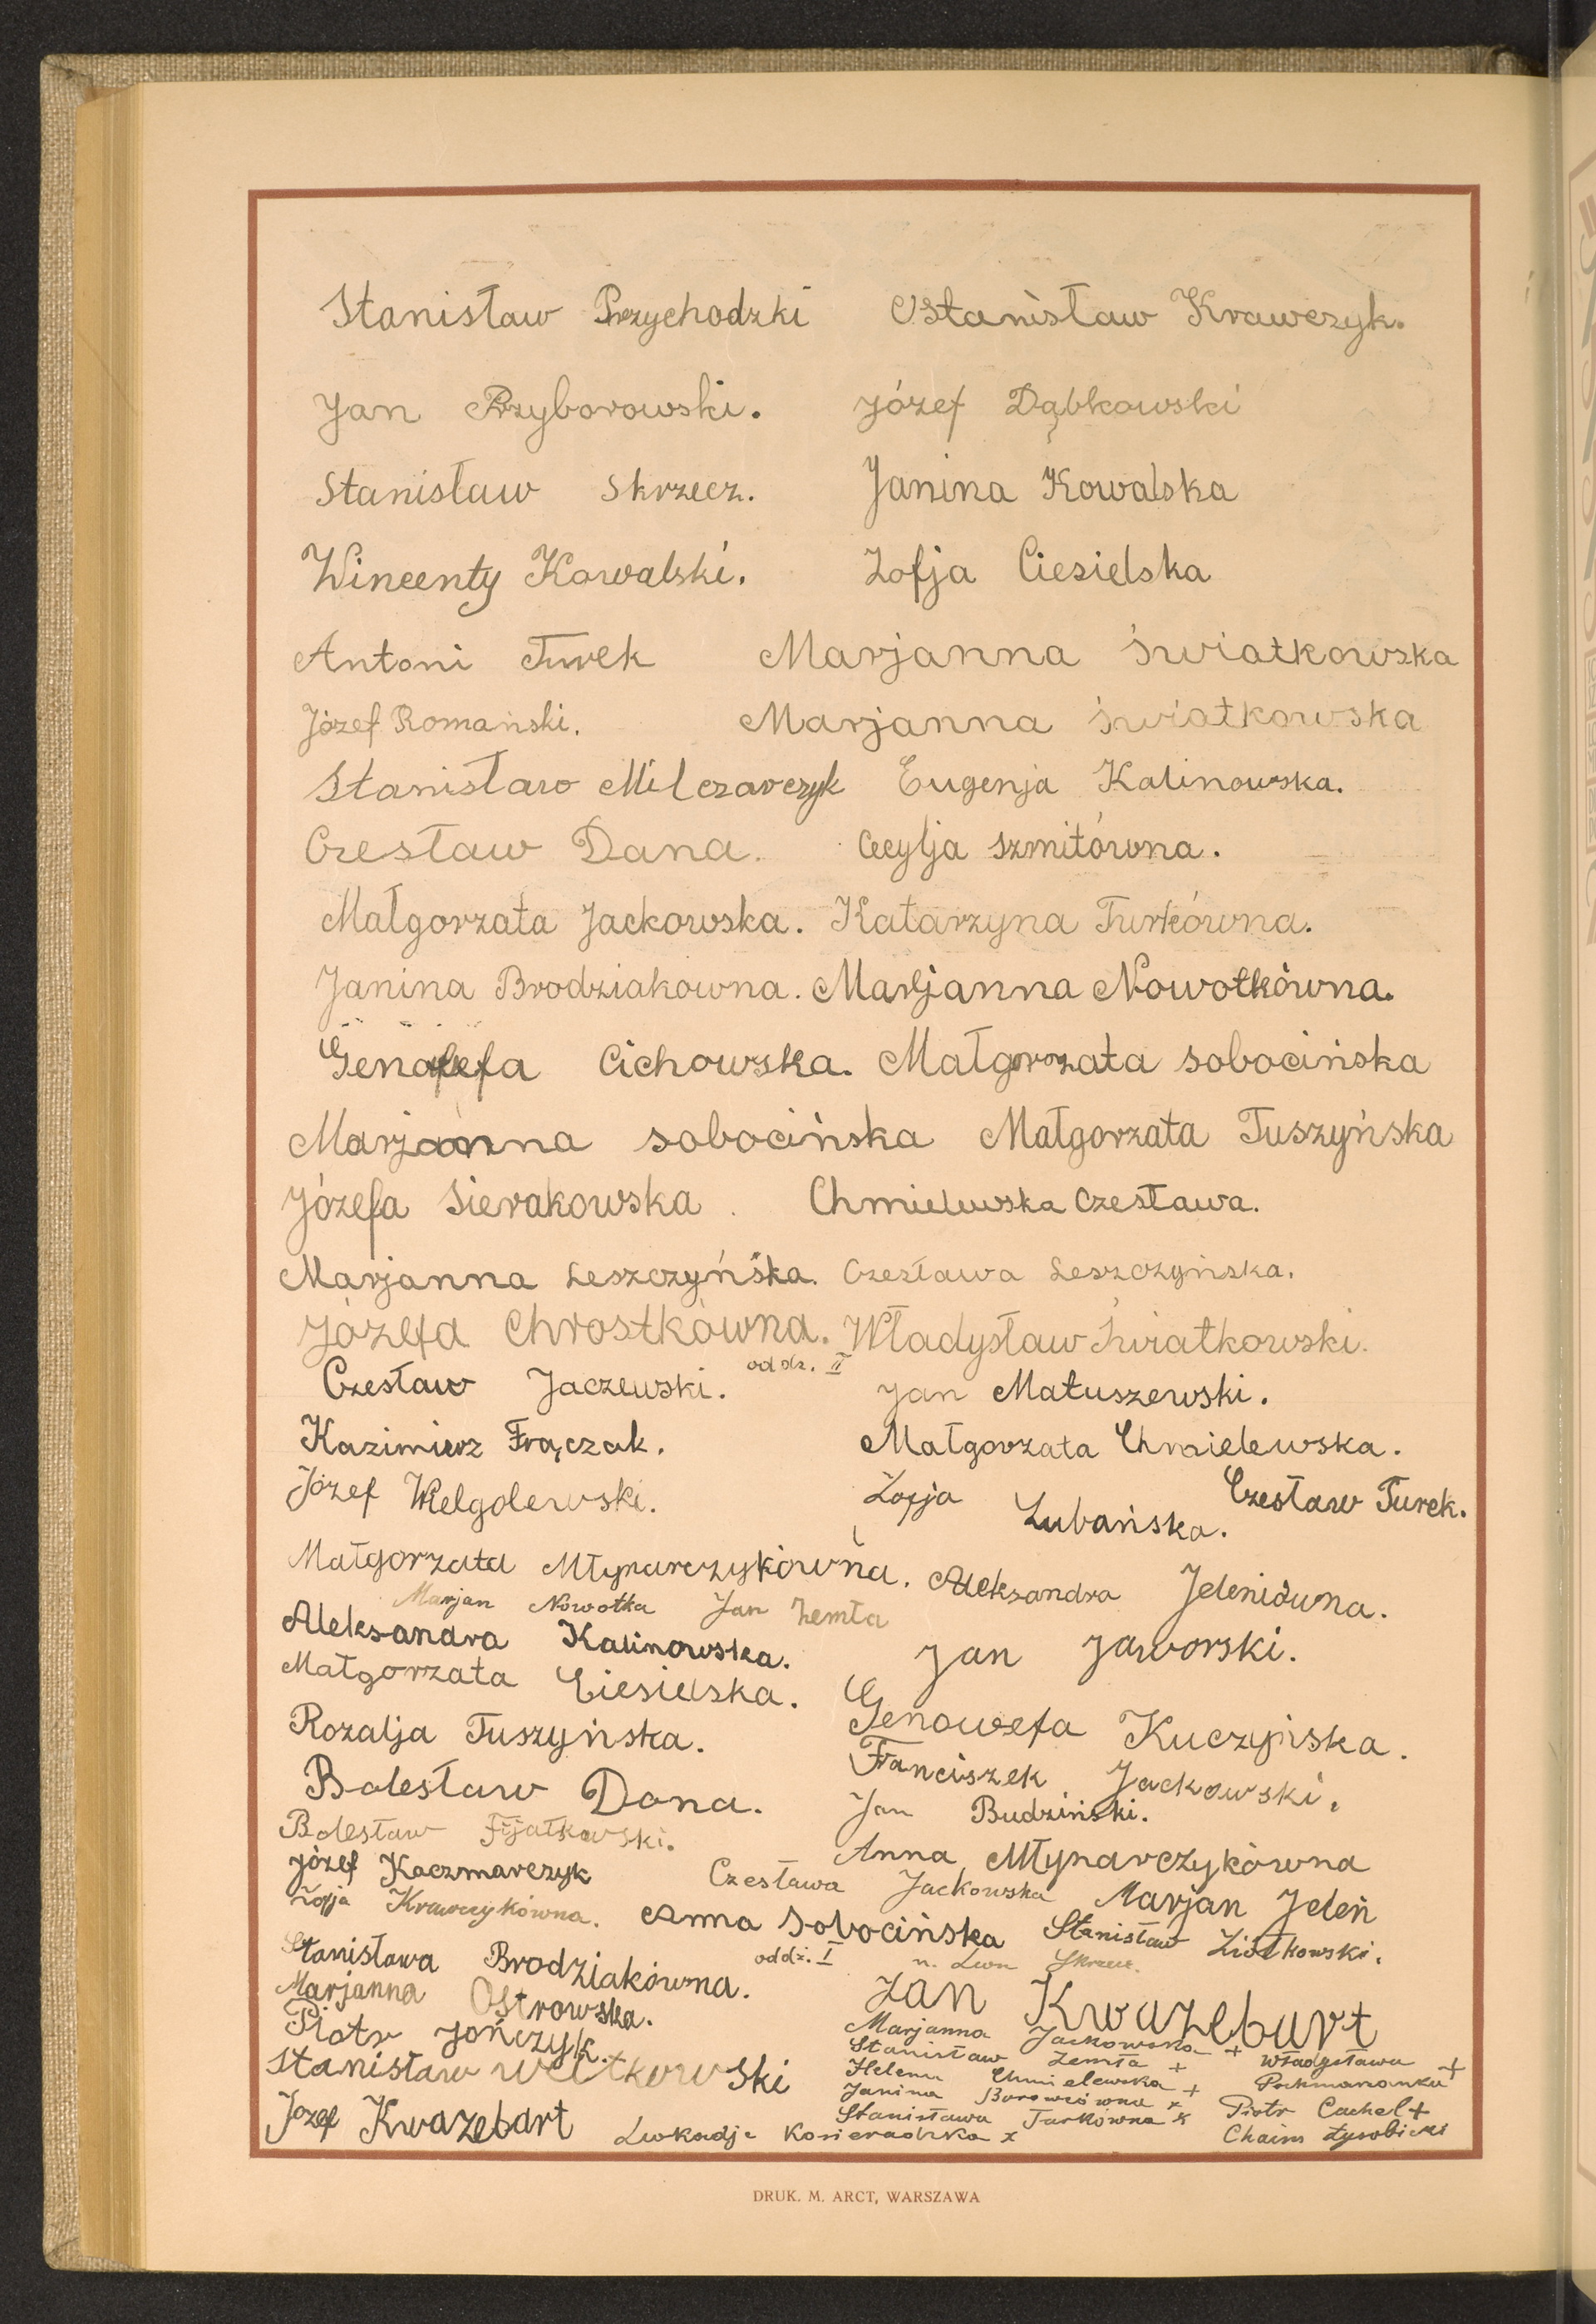 Stanisław Przychodzki Stanisław Krawczyk.
Jan Przyborowski. Józef Dąbkowski
Stanisław Skrzecz. Janina Kowalska
Wincenty Kowalski. Zofja Ciesielska
Antoni Turek Marjanna Światkowska
Józef Romański. Marjanna Światkowska
Stanisław Milczarczyk Eugenja Kalinowska.
Czesław Dana. Cecylja Szmitówna.
Małgorzata Jackowska. Katarzyna Turkówna.
Janina Brodziakowna. Marjanna Nowotkówna.
Genofefa Cichowska. Małgorzata Sobocińska
Marjanna Sobocińska Małgorzata Tuszyńska
Józefa Sierakowska. Chmielewska Czesława.
Marjanna Leszczyńska. Czesława Leszczyńska.
Józefa Chrostkówna. Władysław Światkowski.
oddz. II
Czesław Jaczewski. Jan Matuszewski.
Kazimierz Frączak. Małgorzata Chmielewska.
Józef Wielgolewski. Zofja Lubańska. Czesław Turek.
Małgorzata Młynarczykówna. Aleksandra Jeleniówna.
Marjan Nowotka Jan Zemła
Aleksandra Kalinowska. Jan Jaworski.
Małgorzata Ciesielska. Genowefa Kuczyńska.
Rozalja Tuszyńska. Franciszek Jackowski.
Bolesław Dana. Jan Budziński.
Bolesław Fijałkowski. Anna Młynarczykówna
Józef Kaczmarczyk Czesława Jackowska Marjan Jeleń
Zofja Krawczykówna. Anna Sobocińska Stanisław Ziółkowski.
oddz. I n. Leon Skrzecz.
Stanisława Brodziakówna. Jan Kwazebart
Marjanna Ostrowska. Marjanna Jackowska +
Piotr Jończyk. Stanisław Zemła + Władysława
Stanisław Witkowski Helena Chmielewska + +
Janina Borowiówna x Piotr Cachel +
Józef Kwazebart Stanisława Turkówna x Chaim
Leokadja Kosieradzka x
DRUK. M. ARCT, WARSZAWA